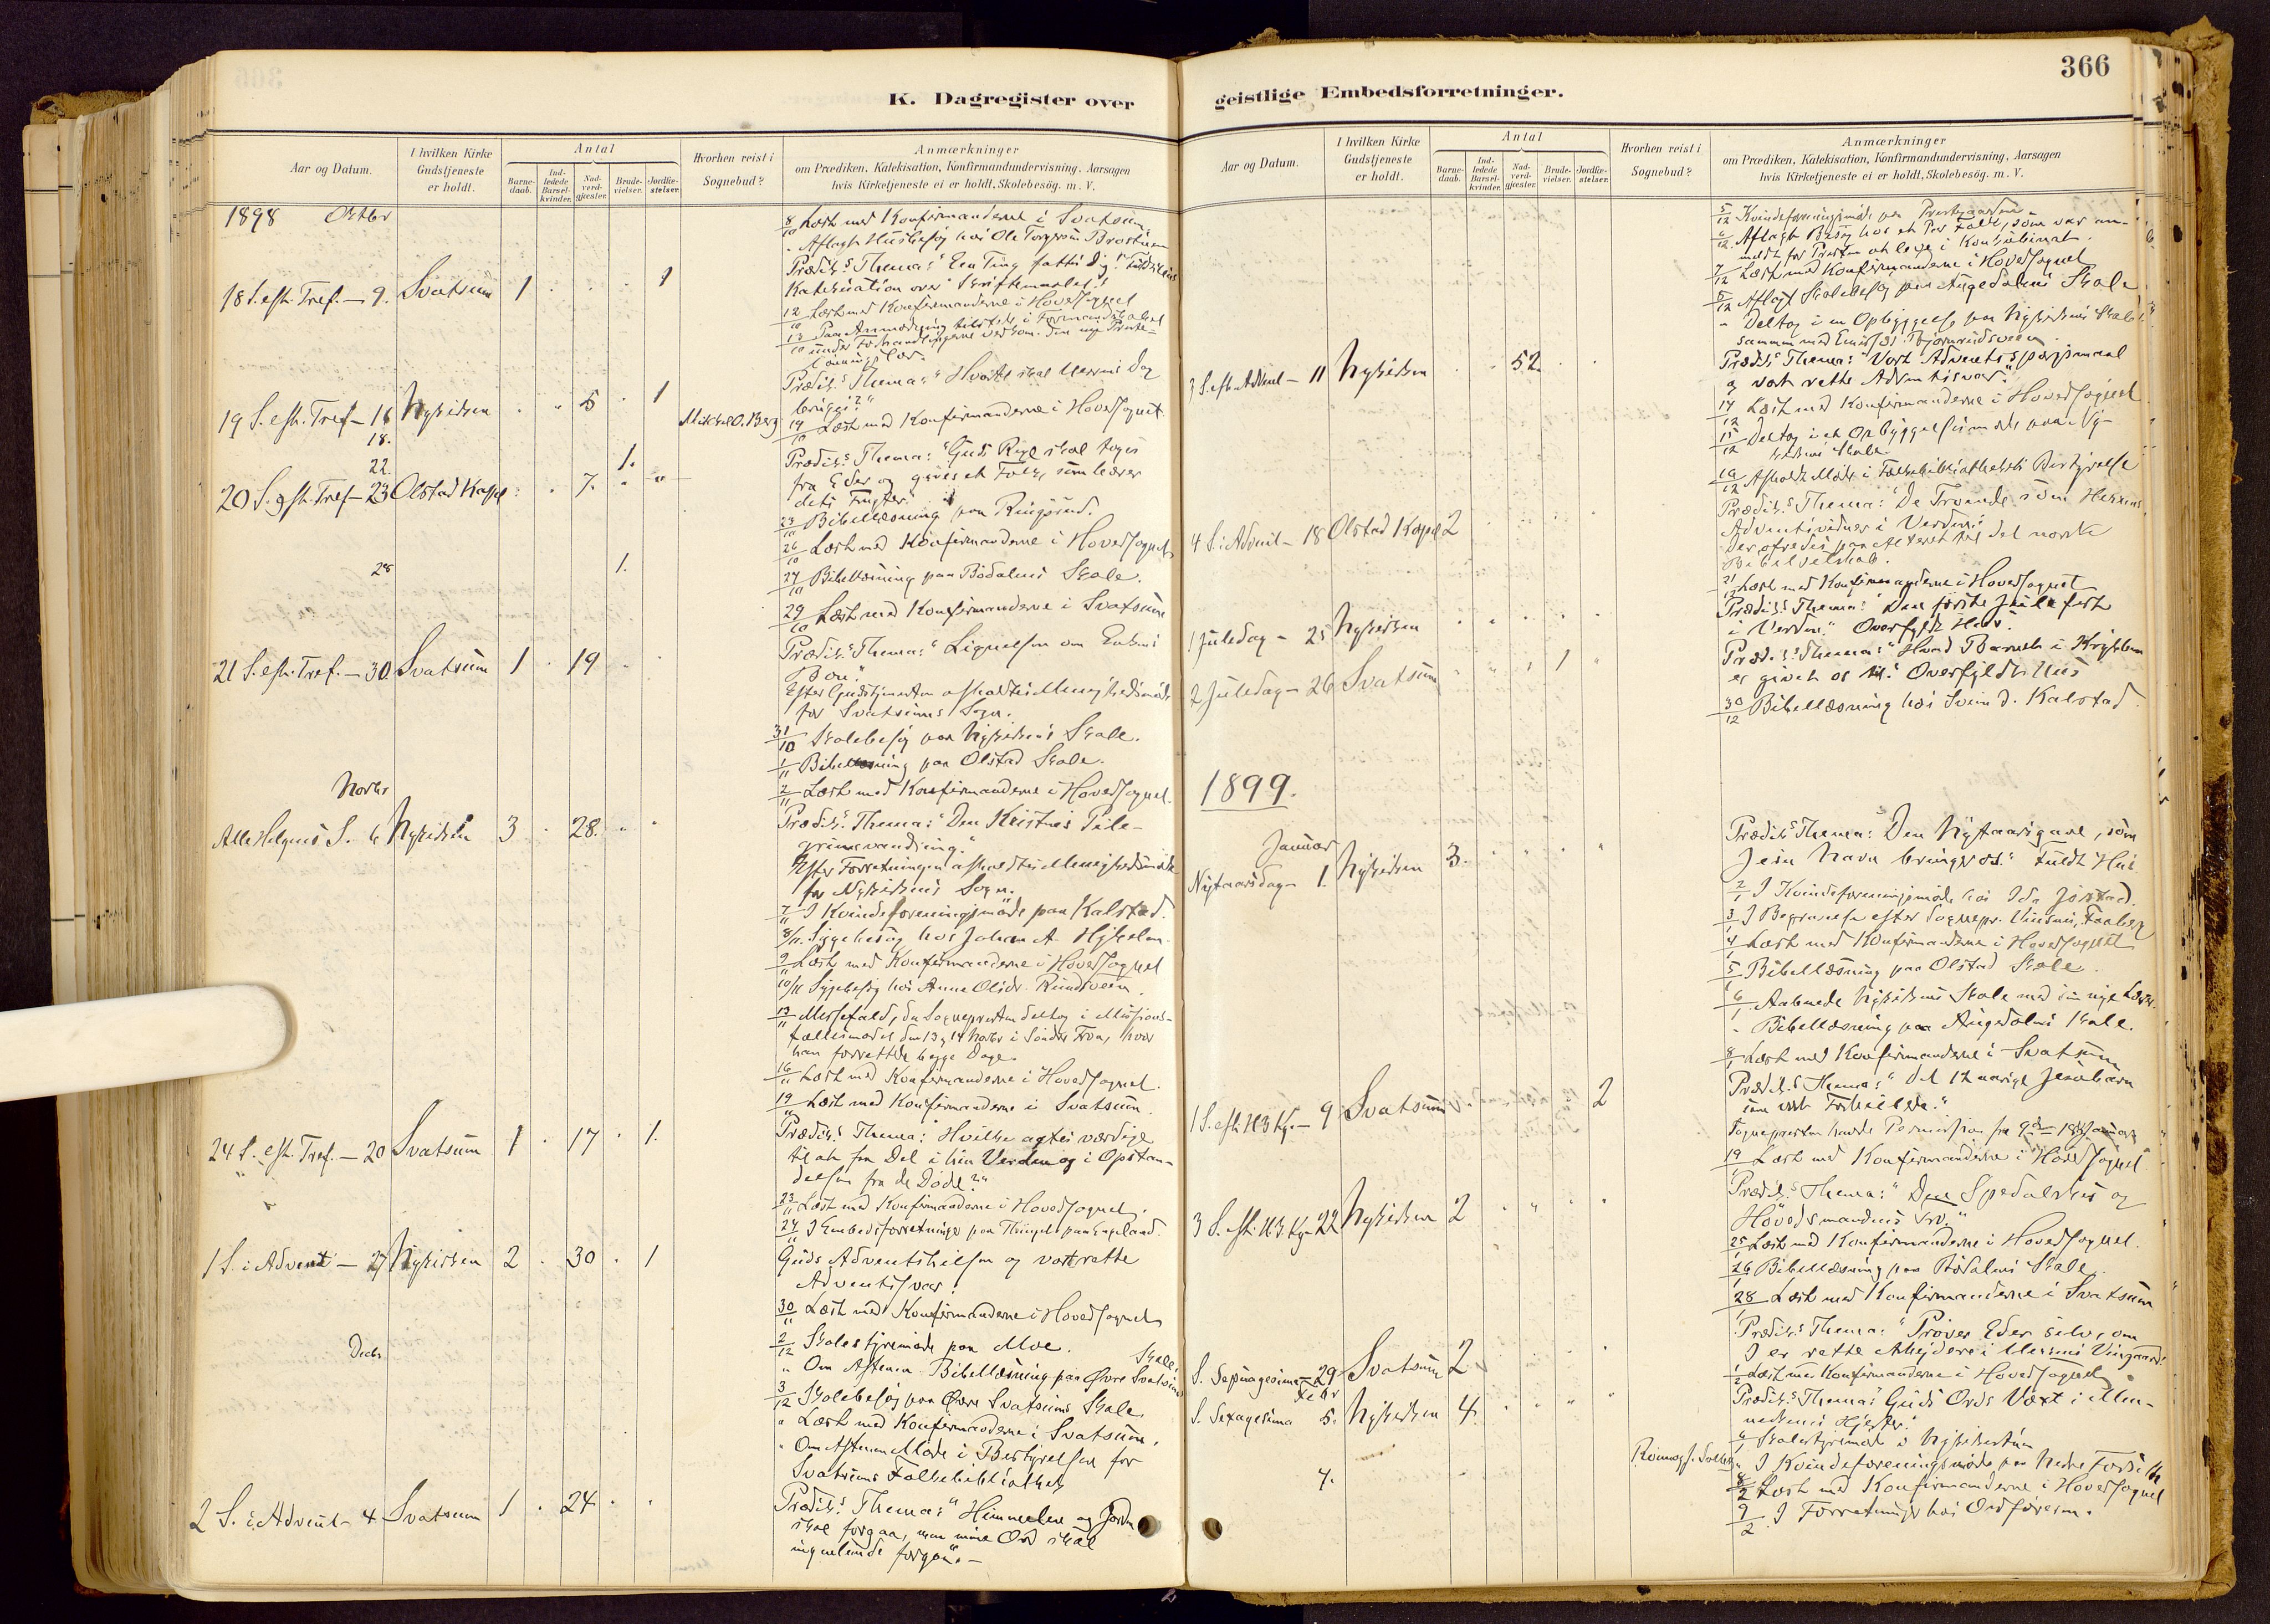 K. Dagregister over
Aar og Datum.
I hvilken Kirke Gudstjeneste er holdt.
Antal
Barnedaab.
Indledede Barselkvinder.
Nadverdgjæster.
Brudevielser.
Jordfæstelser.
Hvorhen reist i Sognebud?
Anmærkninger
om Prædiken, Katekisation, Konfirmandundervisning, Aarsagen
hvis Kirketjeneste ei er holdt, Skolebesög. m. V.
1898 Oktbr
8/10 Læst med Konfirmanderne i Svatsum
" Aflagt Husbesøg hos Ole
18 S. eft. Tref. — 9. Svatsum 1 . . . 1
Prædik.s Thema: "Een Ting fattes Dig!"
Katekisation over Skriftemaalet!
12/10 Læst med Konfirmanderne i Hovedsognet
13/10 Paa Anmodning tilstede i Formandskabet
under Forhandlingerne vedkom. den nye
19 S. eft. Tref — 16 Nykirken . . 5 . 1
Prædik.s Thema: "Hvortil skal Herrens Dag
bruges?"
18. Mikkel O. Berg
19/10 Læst med Konfirmanderne i Hovedsognet
22. 1.
20 S. eft. Tref — 23 Olstad Kapel . . 7. " "
Prædik.s Thema: "Guds Rige skal tages
fra Eder og gives et Folk, som bærer
dets Frugter."
23/10 Bibellæsning paa Ringsrud.
26/10 Læst med Konfirmanderne i Hovedsognet
28 1.
27/10 Bibellæsning paa Bødalens Skole.
29/10 Læst med Konfirmanderne i Svatsum
21 S. eft. Tref. — 30. Svatsum 1 . 19 . .
Prædik.s Thema: "Lignelsen om Enkens
Bøn."
Efter Gudstjenesten afholdtes Menighedsmøde
for Svatsums Sogn.
31/10 Skolebesøg paa Nykirkens Skole.
1/11 Bibellæsning paa Olstad Skole.
2/11 Læst med Konfirmanderne i Hovedsognet.
Novbr
Alle Helgens S. 6 Nykirken 3 . 28. " "
Prædik.s Thema: "Den Kristnes Pile-
grimsvandring."
Efter Forretningen afholdtes Menighedsmøde
for Nykirkens Sogn.
7/11 I Kvindeforeningsmøde paa Kalstad.
8/11. Sygebesøg hos Johan A.
9/11 Læst med Konfirmanderne i Hovedsognet
10/11 Sygebesøg hos Anne Olsdr. Rundsveen.
13/11 Messefald, da Sognepresten deltog i Missions-
fællesmødet den 13 og 14 Novbr i Søndre Fron, hvor
han forrettede begge Dage.
16/11 Læst med Konfirmanderne i Hovedsognet.
19/11 Læst med Konfirmanderne i Svatsum.
24 S. eft. Tref. — 20 Svatsum 1 . 17 . 1.
Prædik.s Thema: "Hvilke agtes værdige
til at faa Del i hin Verden og i Opstan-
delsen fra de Døde?"
23/11 Læst med Konfirmanderne i Hovedsognet.
24/11 I Embedsforretninger paa Thinget paa
1 S. i Advent — 27 Nykirken 2 . 30 . 1
Guds Adventshilsen og vort rette
Adventssvar!
30/11 Læst med Konfirmanderne i Hovedsognet
Decbr
2/12 Skolestyremøde paa Moe.
" Om Aftenen Bibellæsning paa Øvre Svatsums Skole.
3/12 Skolebesøg paa Øvre Svatsums Skole
" Læst med Konfirmanderne i Svatsum.
" Om Aftenen Møde i Bestyrelsen for
Svatsums Folkebibliothek
2 S. i Advent — 4 Svatsum 1 . 24 . .
Prædik.s Thema: "Himmelen og Jorden
skal forgaa, men mine Ord skal
ingenlunde forgaa." —
366
geistlige Embedsforretninger.
Aar og Datum.
I hvilken Kirke Gudstjeneste er holdt.
Antal
Barnedaab.
Indledede Barselkvinder.
Nadverdgjæster.
Brudevielser.
Jordfæstelser.
Hvorhen reist i Sognebud?
Anmærkninger
om Prædiken, Katekisation, Konfirmandundervisning, Aarsagen
hvis Kirketjeneste ei er holdt, Skolebesög. m. V.
5/12 Kvindeforeningsmøde paa Prestegaarden
6/12. Aflagt Besøg hos et Par Folk, som var an-
meldt for Presten at leve i Konkubinat.
7/12 Læst med Konfirmanderne i Hovedsognet
8/12 Aflagt Skolebesøg paa Augedalens Skole
" Deltog i en Opbyggelse paa Nykirkens Skole
sammen med
3 S. eft. Advent — 11 Nykirken . . 52.
Prædik.s Thema: "Vort Adventsspørgsmaal
og vort rette Adventssvar."
14/12 Læst med Konfirmanderne i Hovedsognet
15/12 Deltog i et Opbyggelsesmøde paa Ny-
kirkens Skole
16/12 Afholdt Møde i Folkebibliothekets Bestyrelse
4 S. i Advent — 18 Olstad Kapel 2
Prædik.s Thema: "De Troende som Herrens
Adventsvidner i Verden."
Der ofredes paa Alteret til det norske
Bibelselskab.
21/12 Læst med Konfirmanderne i Hovedsognet
1 Juledag — 25 Nykirken
Prædik.s Thema: "Den første Julefest
i Verden." Overfyldt Hus.
2 Juledag — 26 Svatsum " " " 1 "
Præd.s Thema: "Hvad Barnet i Krybben
er givet os til." Overfyldt Hus
30/12 Bibellæsning hos Svein J. Kalstad.
1899.
Januar
Nytaarsdag — 1. Nykirken 3.
Prædik.s Thema: "Den Nytaarsgave, som
Jesu Navn bringer os." Fuldt Hus.
2/1 I Kvindeforeningsmøde hos Ida Jørstad.
3/1 I Begravelse efter Sognepr. Faaberg
4/1 Læst med Konfirmanderne i Hovedsognet
5/1 Bibellæsning paa Olstad Skole.
6/1 Aabnede Nykirkens Skole med sin nye Lærer.
" Bibellæsning paa Augedalens Skole.
8/1 Læst med Konfirmanderne i Svatsum
1 S. eft. H3Kg. — 9 Svatsum 2
Prædik.s Thema: "Det 12 aarige Jesubarn
som vort Forbillede."
Sognepresten havde Permission fra 9de — 18de Januar
19/1 Læst med Konfirmanderne i Hovedsognet
3 S. eft. H3.Kg. 22 Nykirken 2
Prædik.s Thema: "Den Spedalskes og
Høvedsmandens Tro."
25/1 Læst med Konfirmanderne i Hovedsognet.
26/1 Bibellæsning paa Bødalens Skole.
28/1 Læst med Konfirmanderne i Svatsum
S. Septuagesima — 29 Svatsum 2
Prædik.s Thema: "Prøver Eder selv, om
I er rette Arbejdere i Herrens Vingaard!"
1/2 Læst med Konfirmanderne i Hovedsognet
Febr
S. Sexagesima 5. Nykirken 4.
Prædik.s Thema: "Guds Ords Væxt i Men-
neskenes Hjerter."
6/ Skolestyremøde i
7.
" I Kvindeforeningsmøde paa Nedre
8/2 Læst med Konfirmanderne i Hovedsognet
9/2. I Forretninger hos Ordføreren.